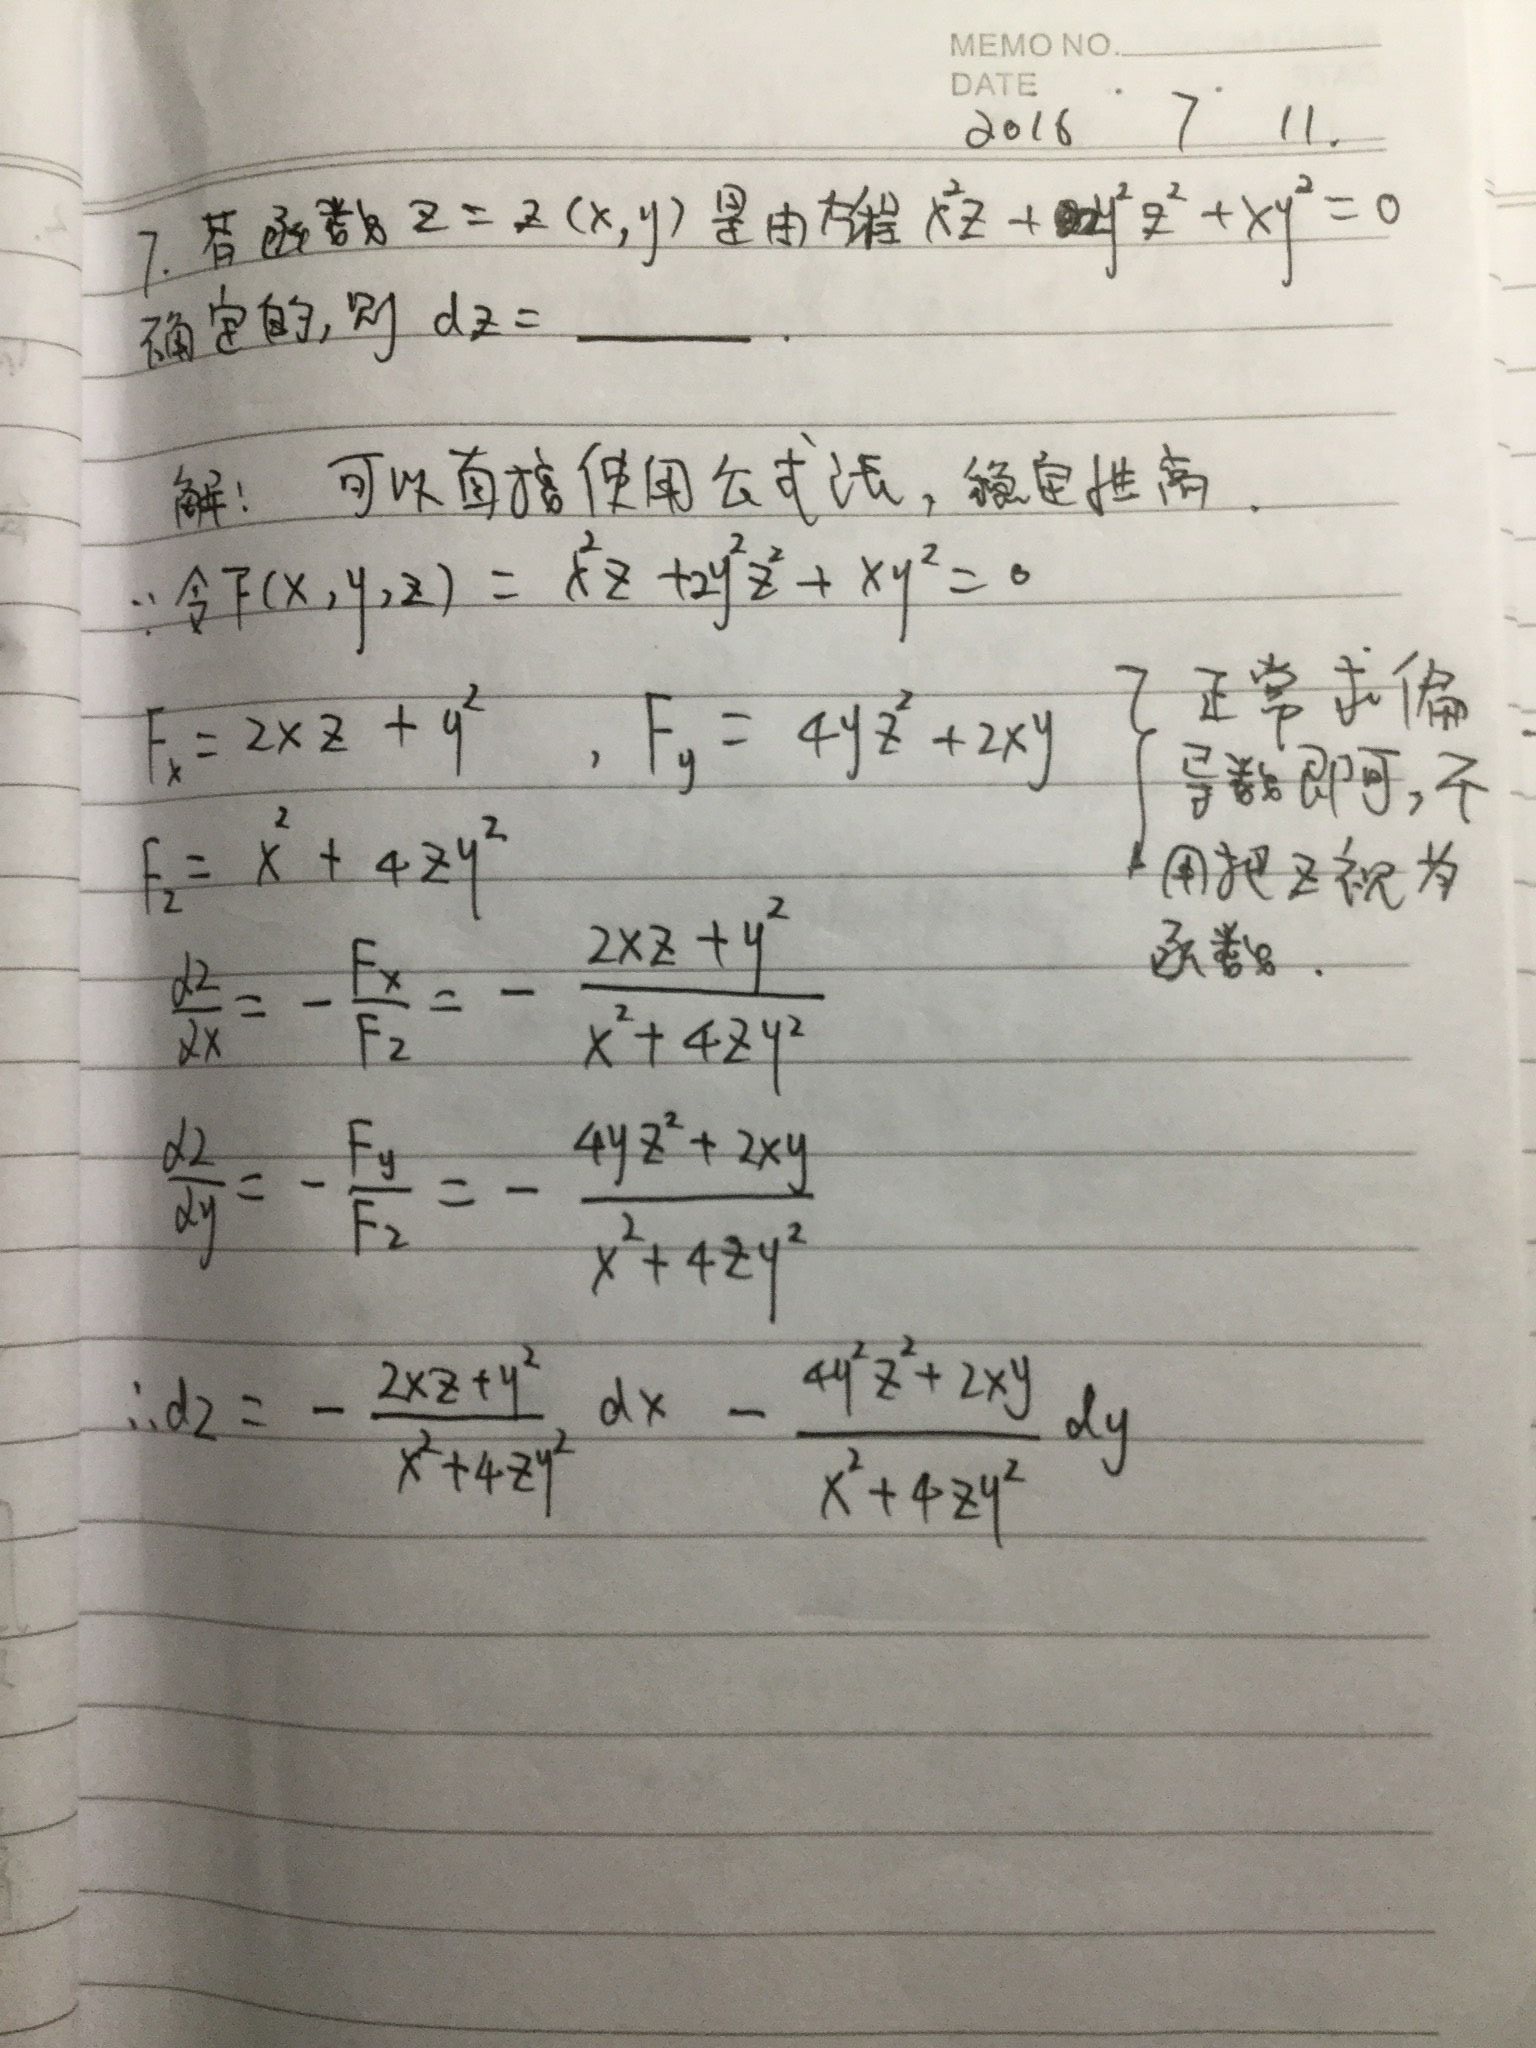 MEMO NO.
DATE . .
2016 7 11.
7. 若函数 z = z (x, y) 是由方程 x²z + 2y²z² + xy² = 0
确定的, 则 dz = ______ .
解: 可以直接使用公式法, 稳定性高.
∵ 令F(x, y, z) = x²z + 2y²z² + xy² = 0
Fx = 2xz + y² , Fy = 4yz² + 2xy
Fz = x² + 4zy²
正常求偏
导数即可, 不
用把z视为
函数.
∂z/∂x = - Fx/Fz = - (2xz + y²)/(x² + 4zy²)
∂z/∂y = - Fy/Fz = - (4yz² + 2xy)/(x² + 4zy²)
∴ dz = - (2xz + y²)/(x² + 4zy²) dx - (4y²z² + 2xy)/(x² + 4zy²) dy